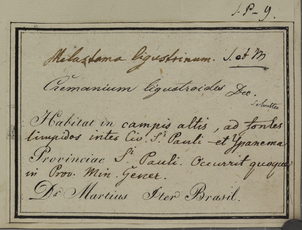 S. P - 9.
Melastoma ligustrinum. S. et M
Cremanium ligustroides Dec.
Habitat in campis altis, ad fontes
limpidos inter Civ. St. Pauli et Ypanema
Provinciae St. Pauli. Occurrit quoque
in Prov. Min. Gener.
Dr Martius Iter Brasil.